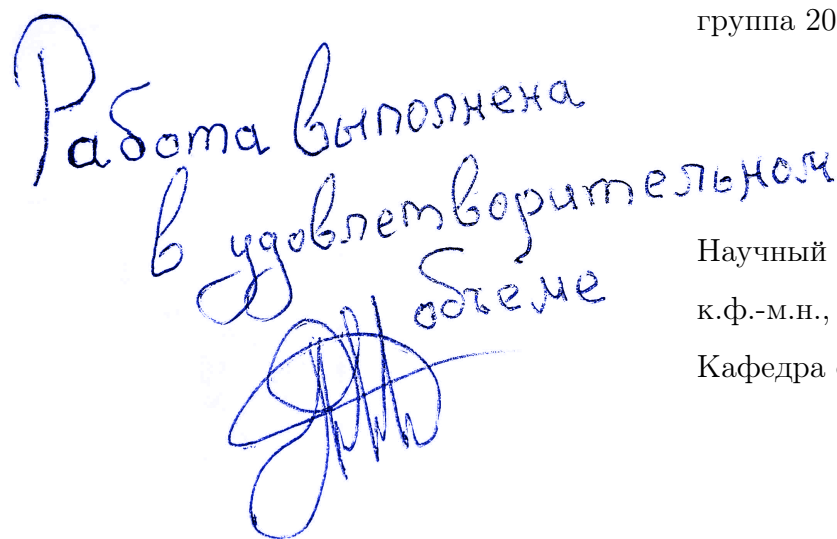 группа 20
Работа выполнена
в удовлетворительном
объёме
Научный
к.ф.-м.н.,
Кафедра